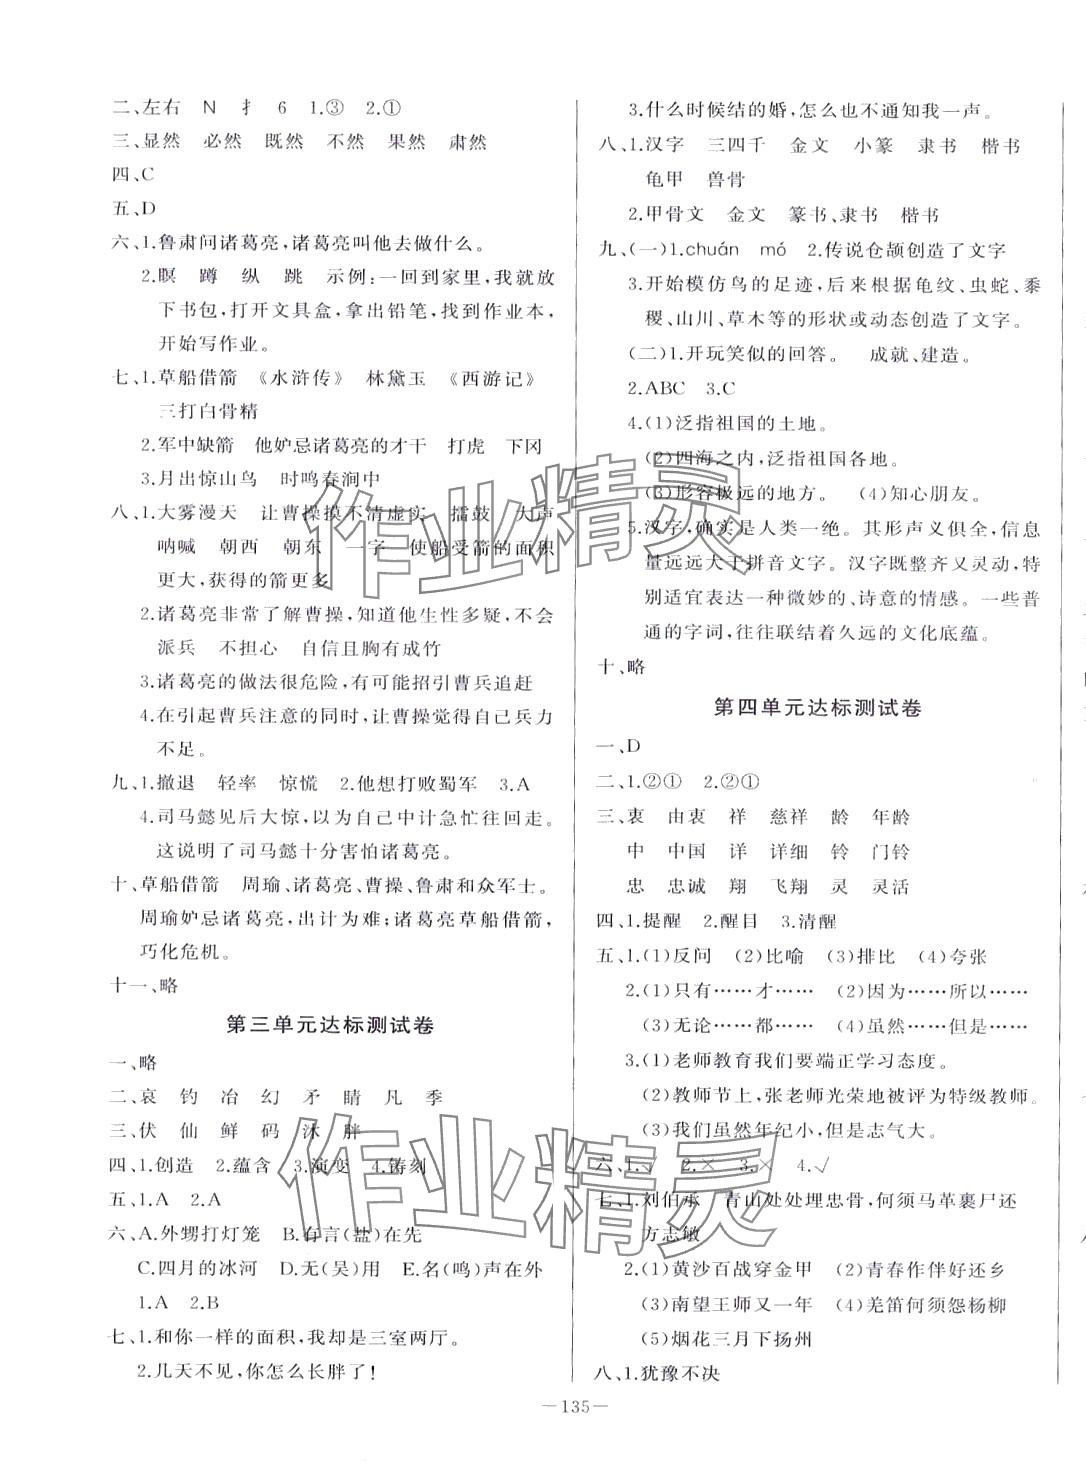 二、左右　N　扌　6　1.③　2.①
三、显然　必然　既然　不然　果然　肃然
四、C
五、D
六、1.鲁肃问诸葛亮，诸葛亮叫他去做什么。
2.瞑　蹲　纵　跳　示例：一回到家里，我就放
下书包，打开文具盒，拿出铅笔，找到作业本，
开始写作业。
七、1.草船借箭　《水浒传》　林黛玉　《西游记》
三打白骨精
2.军中缺箭　他妒忌诸葛亮的才干　打虎　下冈
3.月出惊山鸟　时鸣春涧中
八、1.大雾漫天　让曹操摸不清虚实　擂鼓　大声
呐喊　朝西　朝东　一字　使船受箭的面积
更大，获得的箭更多
2.诸葛亮非常了解曹操，知道他生性多疑，不会
派兵　不担心　自信且胸有成竹
3.诸葛亮的做法很危险，有可能招引曹兵追赶
4.在引起曹兵注意的同时，让曹操觉得自己兵力
不足。
九、1.撤退　轻率　惊慌　2.他想打败蜀军　3.A
4.司马懿见后大惊，以为自己中计急忙往回走。
这说明了司马懿十分害怕诸葛亮。
十、草船借箭　周瑜、诸葛亮、曹操、鲁肃和众军士。
周瑜妒忌诸葛亮，出计为难；诸葛亮草船借箭，
巧化危机。
十一、略
第三单元达标测试卷
一、略
二、哀　钓　冶　幻　矛　睛　凡　季
三、伏　仙　鲜　码　沐　胖
四、1.创造　2.蕴含　3.演变　4.铸刻
五、1.A　2.A
六、A.外甥打灯笼　B.有言(盐)在先
C.四月的冰河　D.无(吴)用　E.名(鸣)声在外
1.A　2.B
七、1.和你一样的面积，我却是三室两厅。
2.几天不见，你怎么长胖了！
3.什么时候结的婚，怎么也不通知我一声。
八、1.汉字　三四千　金文　小篆　隶书　楷书
龟甲　兽骨
2.甲骨文　金文　篆书、隶书　楷书
九、(一)1.chuán　mó　2.传说仓颉创造了文字
3.开始模仿鸟的足迹，后来根据龟纹、虫蛇、黍
稷、山川、草木等的形状或动态创造了文字。
(二)1.开玩笑似的回答。　成就、建造。
2.ABC　3.C
4.(1)泛指祖国的土地。
(2)四海之内，泛指祖国各地。
(3)形容极远的地方。　(4)知心朋友。
5.汉字，确实是人类一绝。其形声义俱全，信息
量远远大于拼音文字。汉字既整齐又灵动，特
别适宜表达一种微妙的、诗意的情感。一些普
通的字词，往往联结着久远的文化底蕴。
十、略
第四单元达标测试卷
一、D
二、1.②①　2.②①
三、衷　由衷　祥　慈祥　龄　年龄
中　中国　详　详细　铃　门铃
忠　忠诚　翔　飞翔　灵　灵活
四、1.提醒　2.醒目　3.清醒
五、1.(1)反问　(2)比喻　(3)排比　(4)夸张
2.(1)只有……才……　(2)因为……所以……
(3)无论……都……　(4)虽然……但是……
3.(1)老师教育我们要端正学习态度。
(2)教师节上，张老师光荣地被评为特级教师。
(3)我们虽然年纪小，但是志气大。
六、1.√　2.×　3.×　4.√
七、1.刘伯承　青山处处埋忠骨，何须马革裹尸还
方志敏
2.(1)黄沙百战穿金甲　(2)青春作伴好还乡
(3)南望王师又一年　(4)羌笛何须怨杨柳
(5)烟花三月下扬州
八、1.犹豫不决
—135—
作业精灵
作业精灵